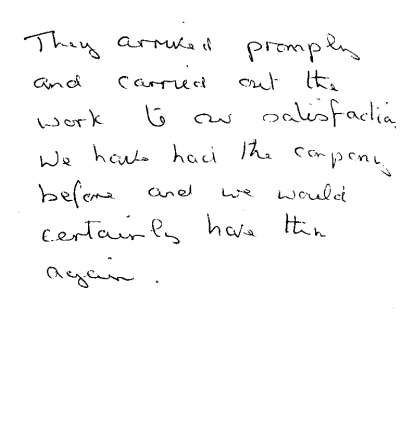 They arrived promply
and carried out the
work to our satisfactia
We have had the company
before and we would
certainly have them
again.